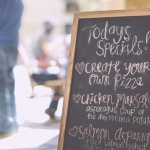 Todays
Specials
create your
own pizza
chicken
asparagus soup or
the day
salmon asparagus